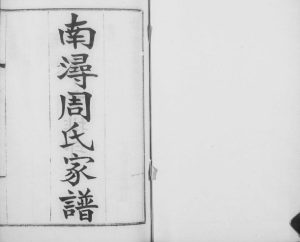 南潯周氏家譜